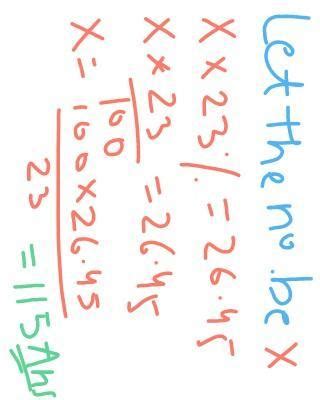 Let the no. be X
X × 23 % = 26.45
X × 23/100 = 26.45
X = 100×26.45/23
= 115 Ans